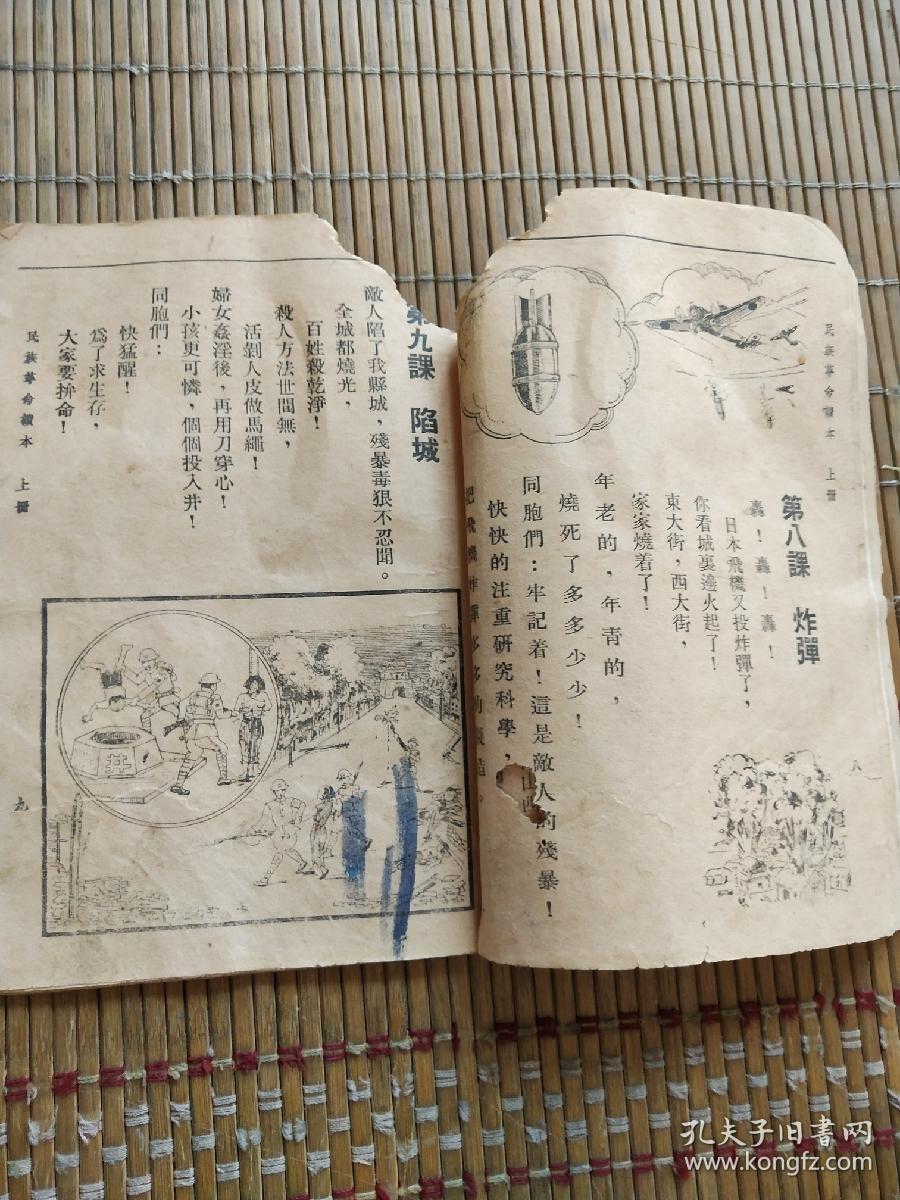 民族革命讀本 上冊
第八課 炸彈
轟！轟！轟！
日本飛機又投炸彈了，
你看城裏邊火起了！
東大街，西大街，
家家燒着了！
年老的，年靑的，
燒死了多多少少！
同胞們：牢記着！這是敵人的殘暴！
快快的注重研究科學，
把飛機炸彈多多的製造。
八
第九課 陷城
敵人陷了我縣城，殘暴毒狠不忍聞。
全城都燒光，
百姓殺乾淨！
殺人方法世間無，
活剝人皮做馬繩！
婦女姦淫後，再用刀穿心！
小孩更可憐，個個投入井！
同胞們：
快猛醒！
爲了求生存，
大家要拚命！
民族革命讀本 上冊
九
井
孔夫子旧書网
www.kongfz.com